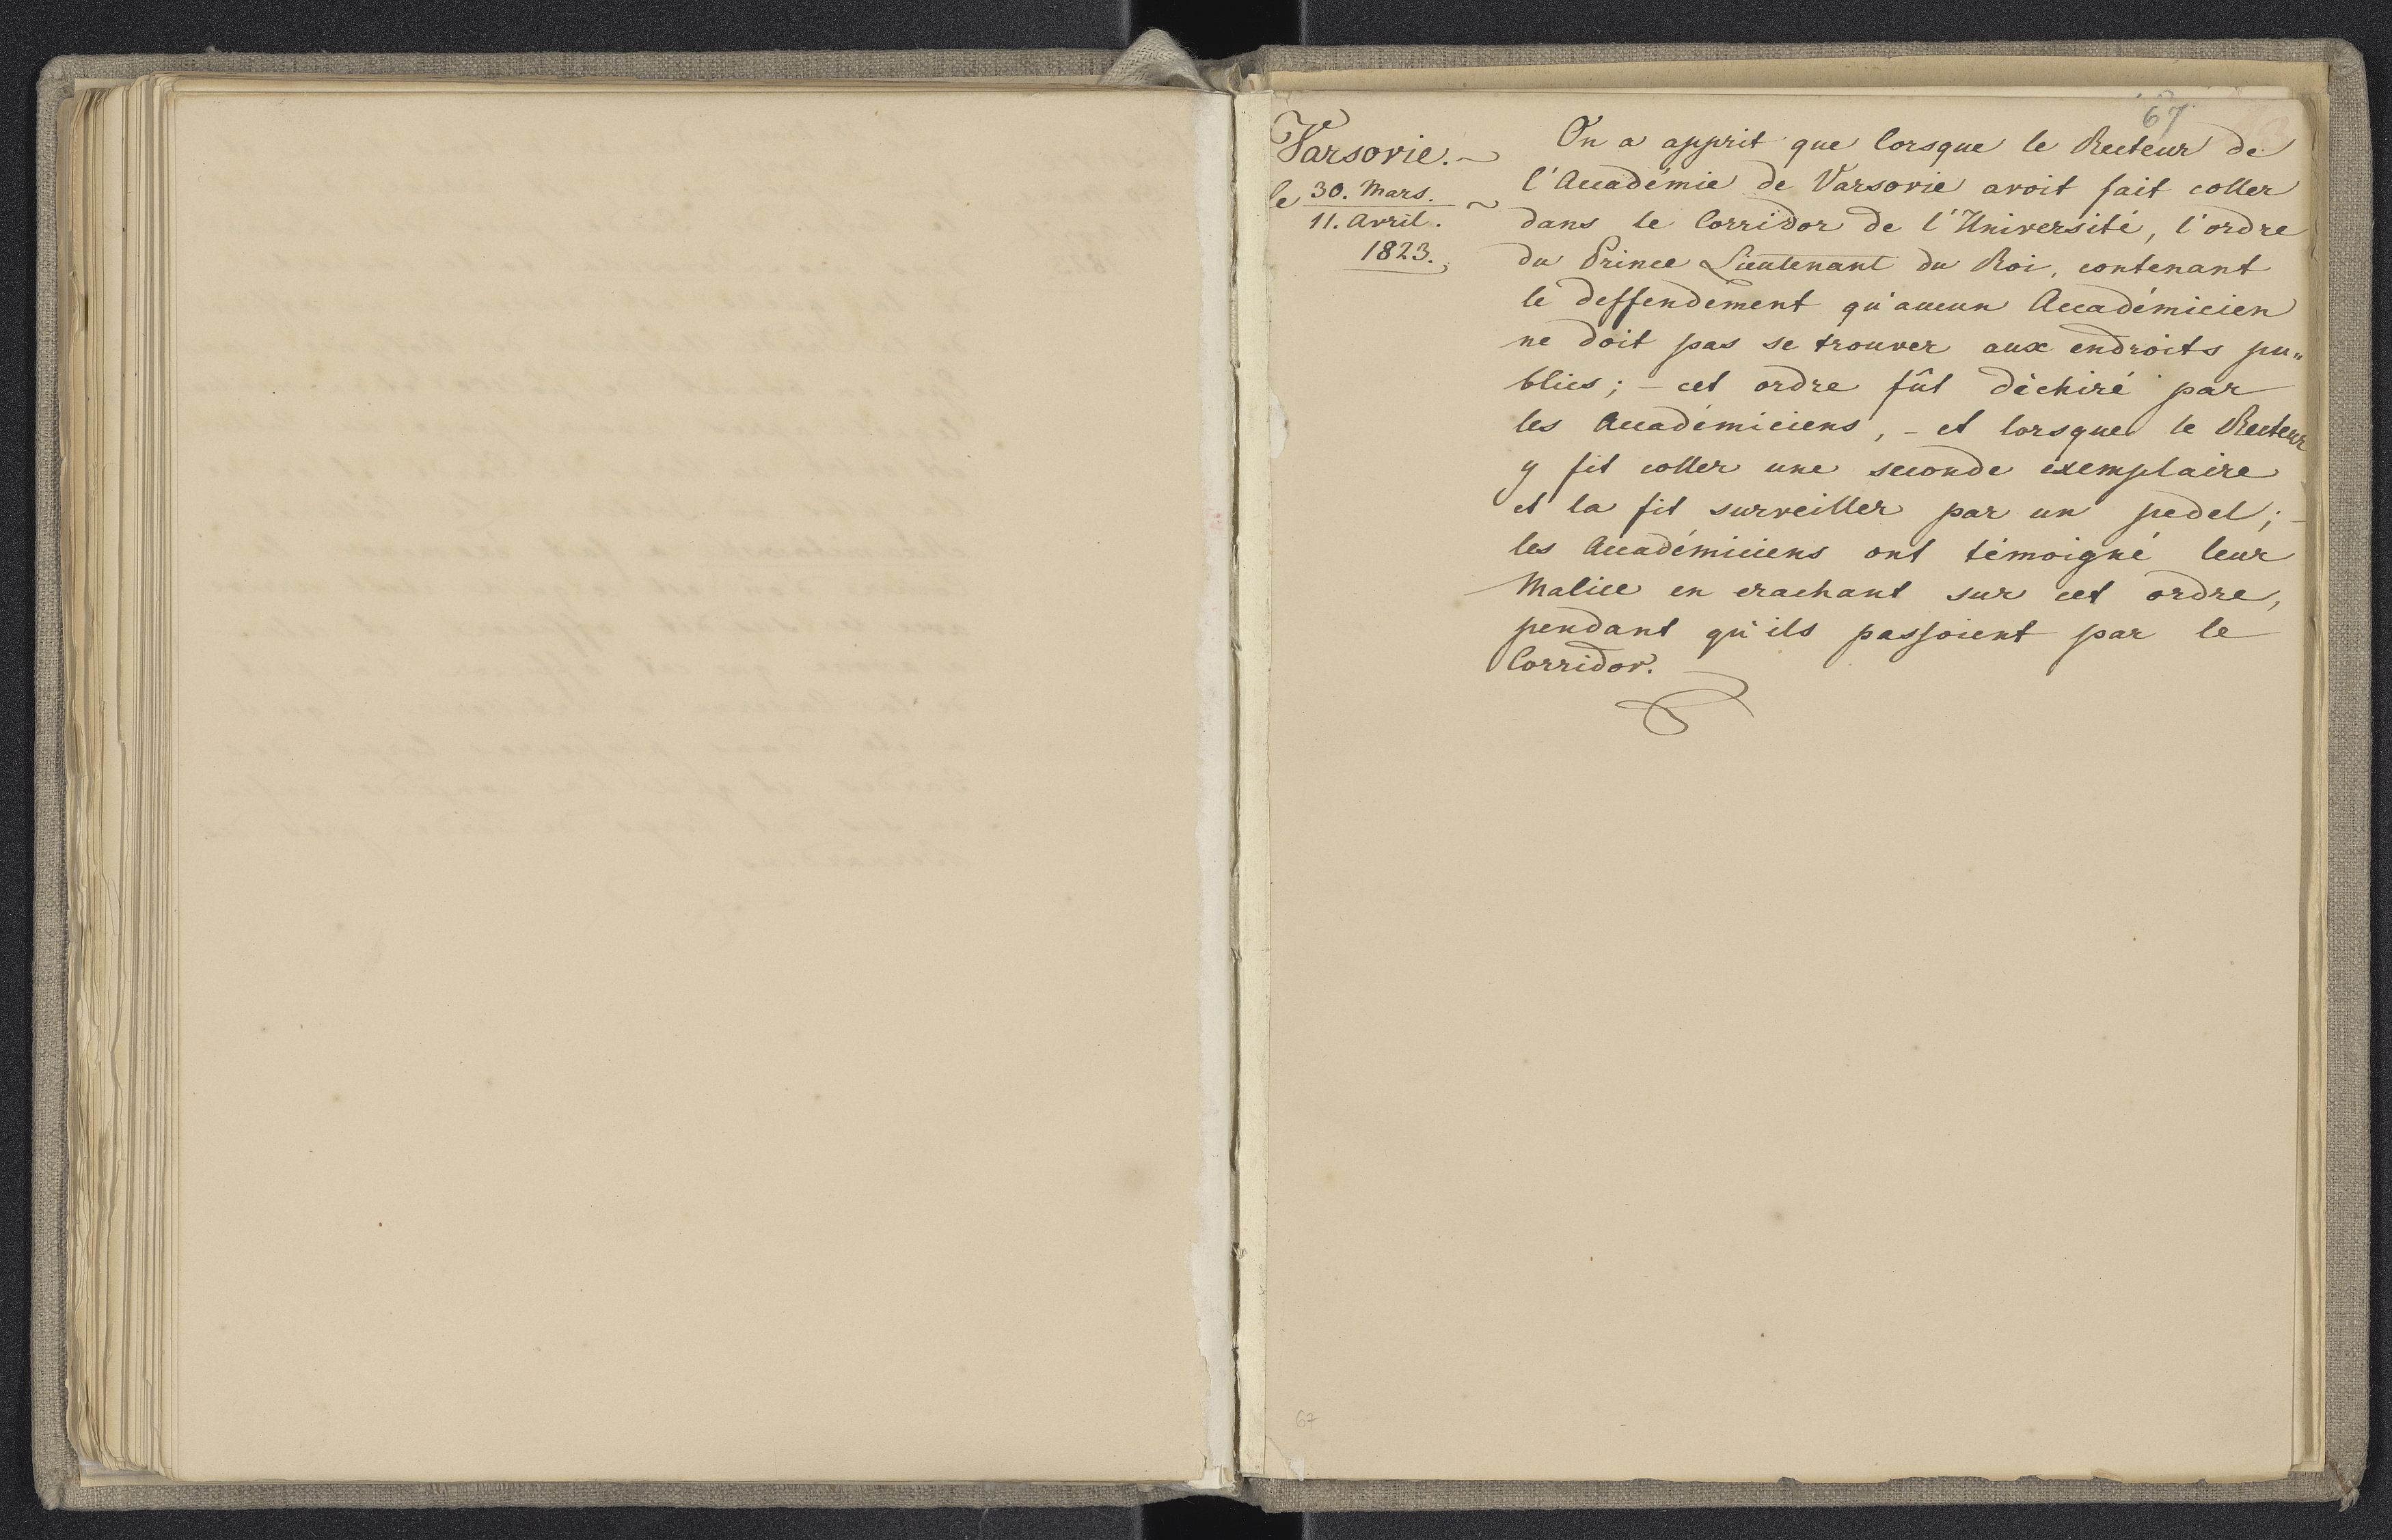 67
Varsovie. ~
le 30. Mars. ~
11. Avril.
1823.
On a apprit que lorsque le Recteur de
l'Accadémie de Varsovie avoit fait coller
dans le Corridor de l'Université, l'ordre
du Prince Lieutenant du Roi, contenant
le deffendement qu'aucun Accadémicien
ne doit pas se trouver aux endroits pu„
blics; – cet ordre fût déchiré par
les Accadémiciens, – et lorsque le Recteur
y fit coller une seconde exemplaire
et la fit surveiller par un pedel; –
les Accadémiciens ont témoigné leur
Malice en crachant sur cet ordre,
pendant qu'ils passoient par le
Corridor.
67